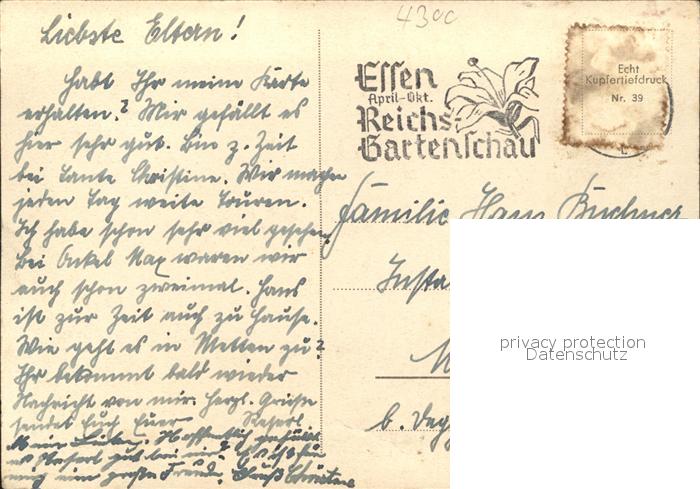 4300
Liebste Eltern!
Habt Ihr meine Karte
erhalten? Mir gefällt es
hier sehr gut. Bin z. Zeit
bei Tante Christine. Wir machen
jeden Tag weite Touren.
Ich habe schon sehr viel gesehen.
Bei Onkel Max waren wir
auch schon zweimal. Hans
ist zur Zeit auch zu Hause.
Wie geht es in Metten zu?
Ihr bekommt bald wieder
Nachricht von mir. Herzl. Grüße
sendet Euch Euer
Meine Lieben. Hoffentlich gefällt
es gut bei mir.
eine große Freude. Gruß
Essen
April-Okt.
Reichs-
Gartenschau
Echt
Kupfertiefdruck
Nr. 39
Familie Hans
Insta
M
b. Deg
privacy protection
Datenschutz